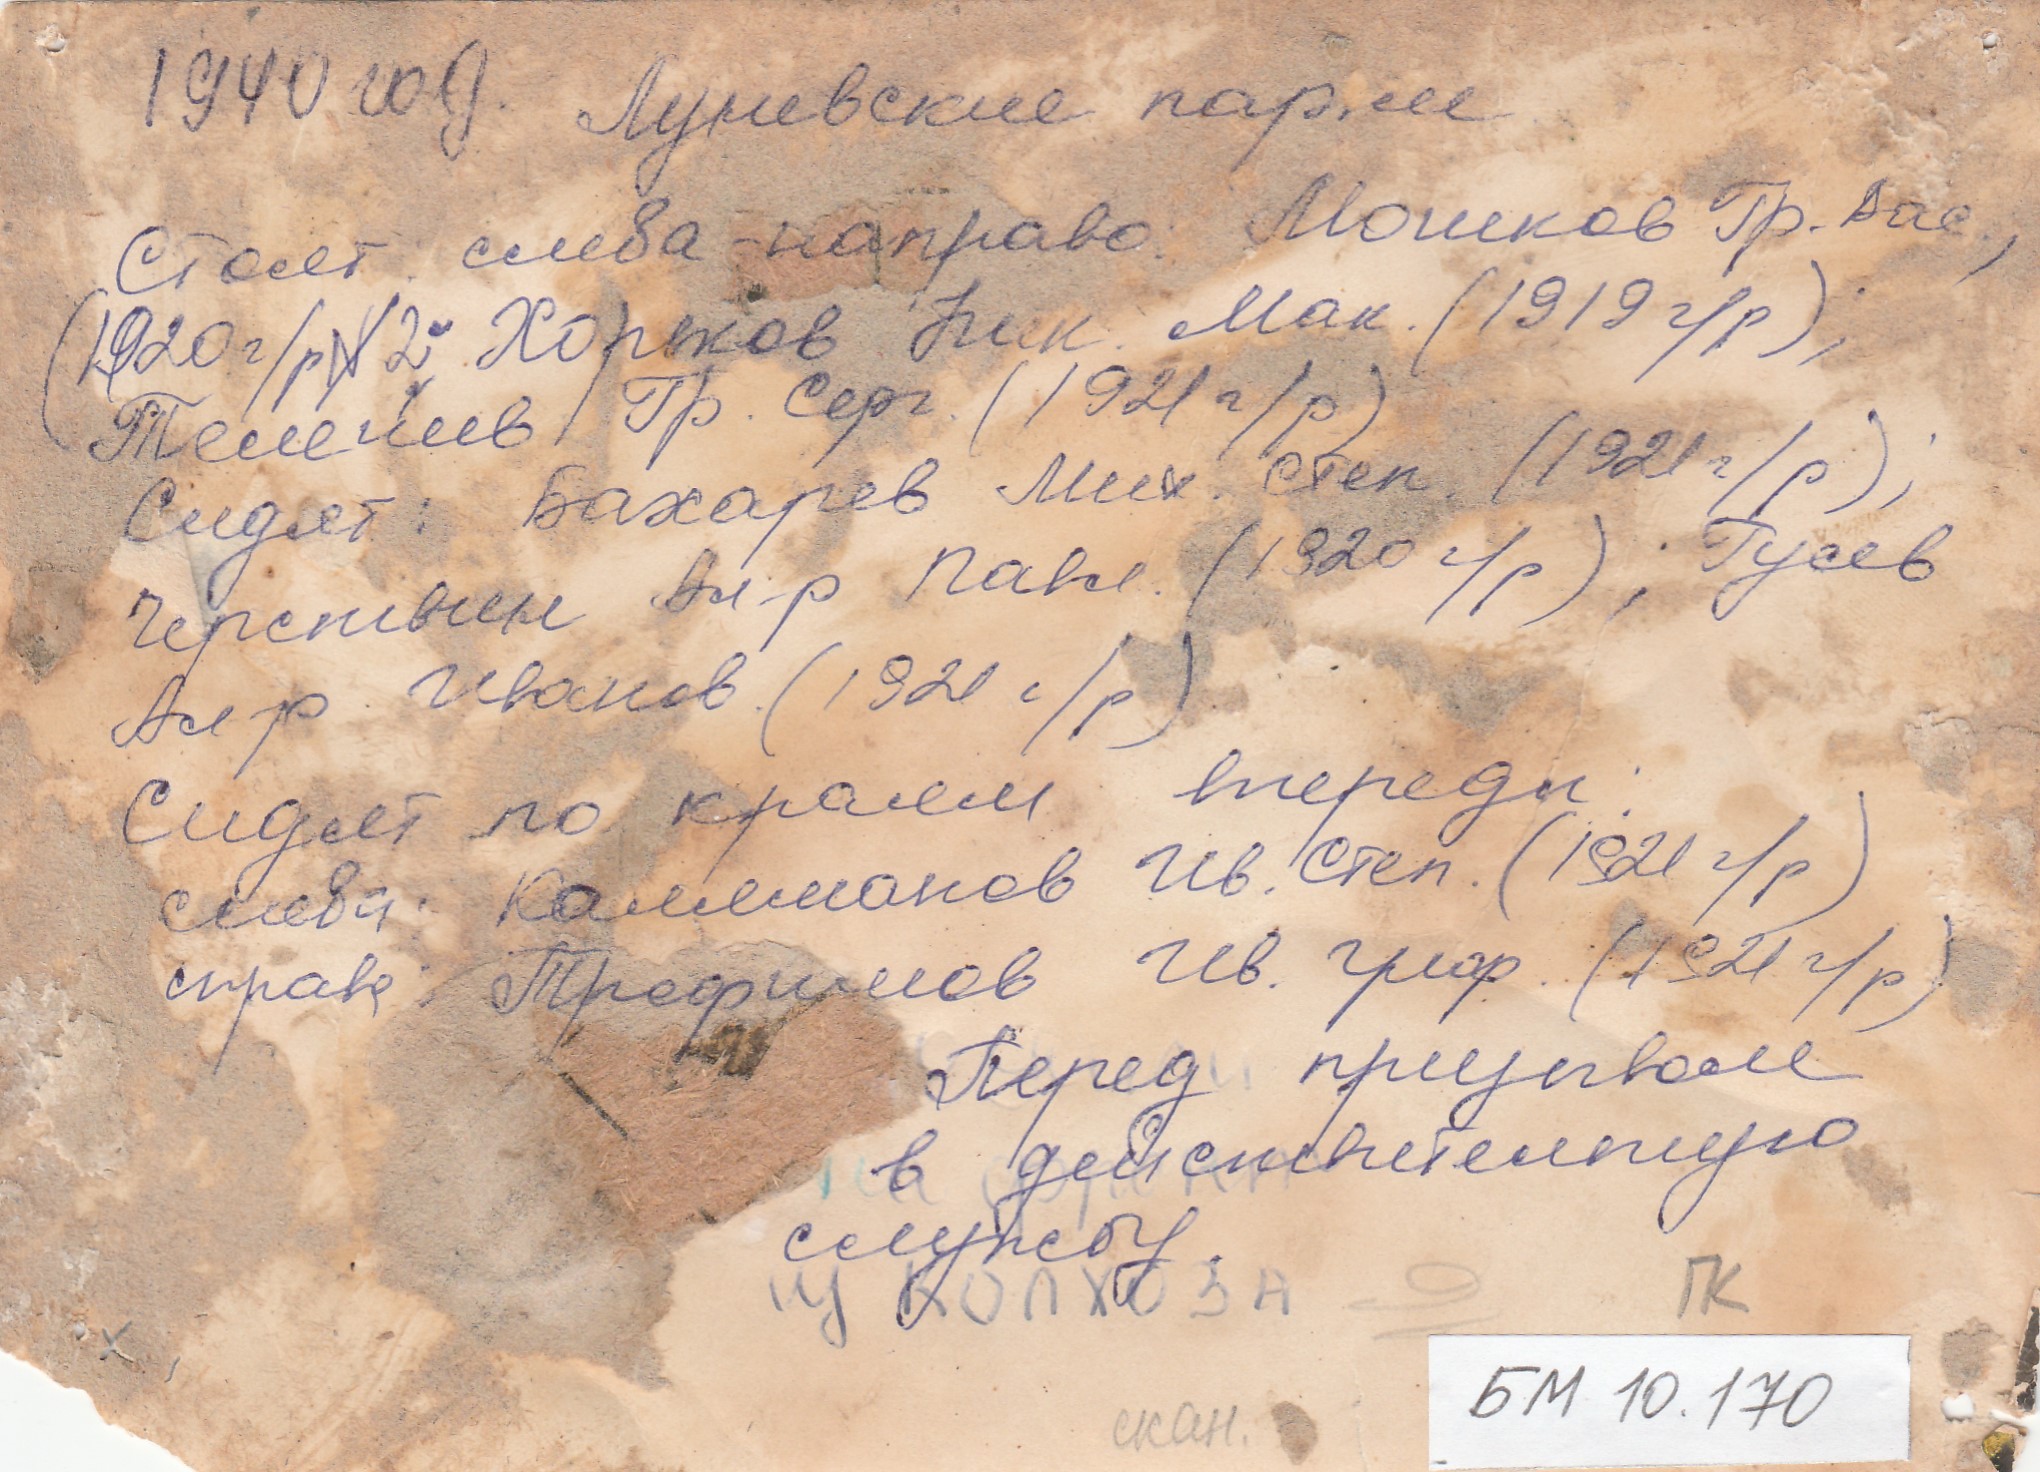 1940 год. Луневские парни
Стоят слева-направо: Мошков Гр. Вас.,
(1920 г/р) 2. Хорьков Ник. Мак. (1919 г/р),
Гр. Серг. (1921 г/р)
Сидят: Бахарев Мих. Степ. (1921 г/р),
Ал-р Павл. (1920 г/р), Гусев
Ал-р Иванов. (1921 г/р)
Сидят по краям впереди:
слева: Калмманов Ив. Степ. (1921 г/р)
справ: Трофимов Ив. (1921 г/р)
Перед призывом
в действительную
службу.
из КОЛХОЗА
ПК
БМ 10.170
скан.